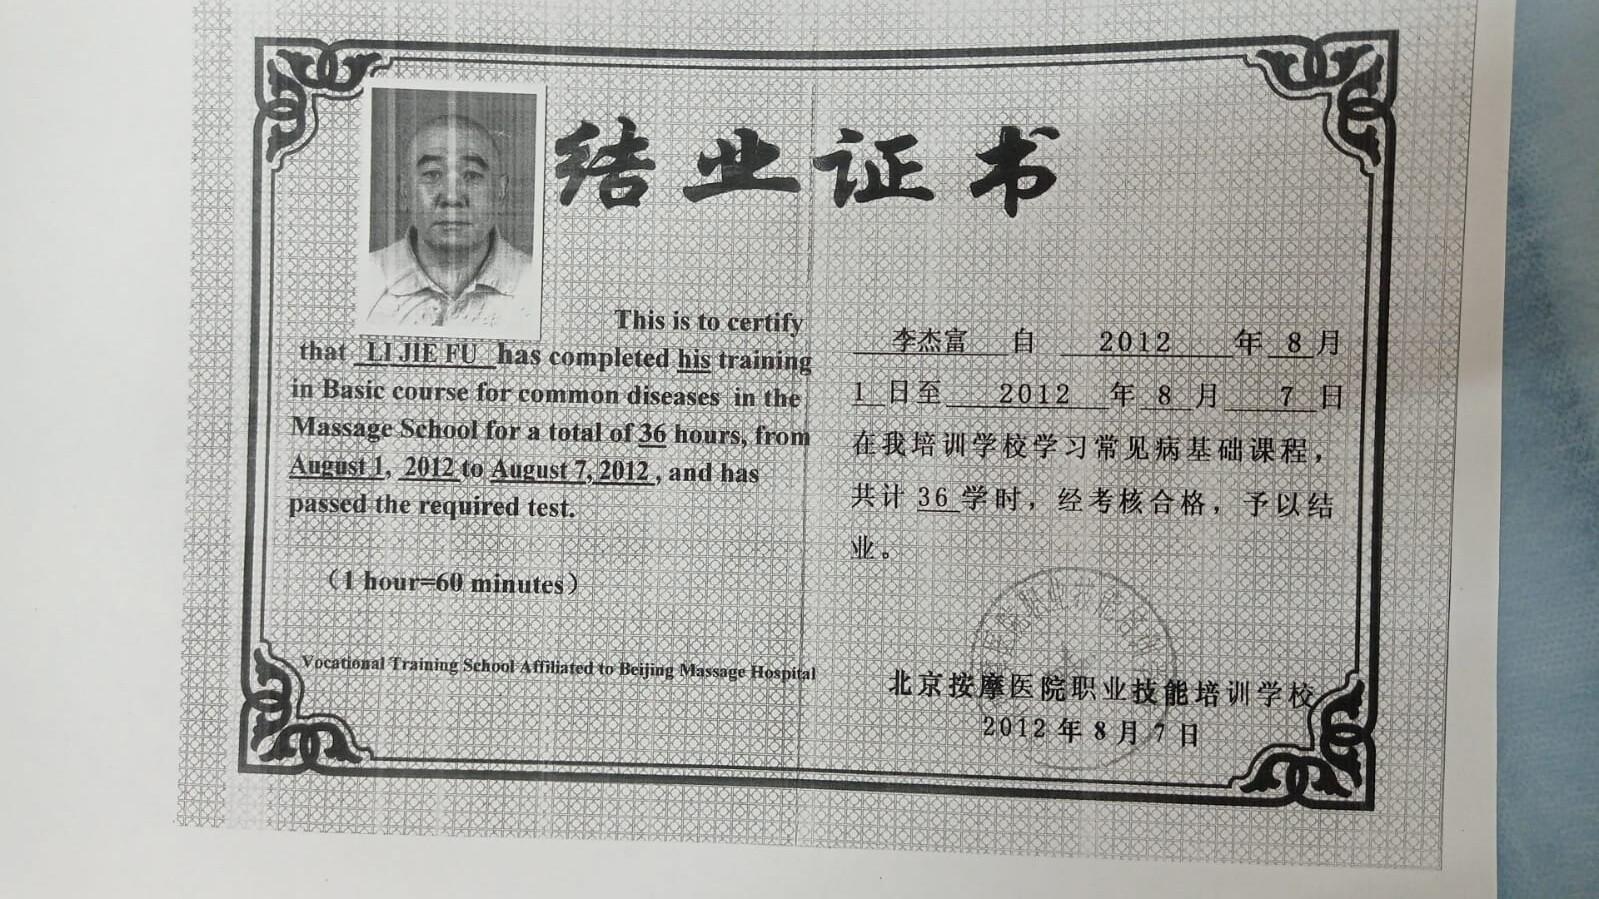 结业证书
This is to certify
that LI JIE FU has completed his training
in Basic course for common diseases in the
Massage School for a total of 36 hours, from
August 1, 2012 to August 7, 2012, and has
passed the required test.
（1 hour=60 minutes）
Vocational Training School Affiliated to Beijing Massage Hospital
李杰富 自 2012 年 8 月
1 日至 2012 年 8 月 7 日
在我培训学校学习常见病基础课程，
共计 36 学时，经考核合格，予以结
业。
北京按摩医院职业技能培训学校
2012 年 8 月 7 日